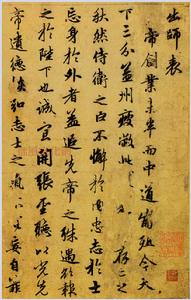 出師表
帝創業未半而中道崩殂今天
下三分益州疲敝此存亡之
秋然侍衛之臣不懈於内忠志士
忘身於外者蓋追先帝之殊遇欲報
之於陛下也誠宜開張聖聽以光先
帝遺德恢弘志士之氣不宜妄自菲